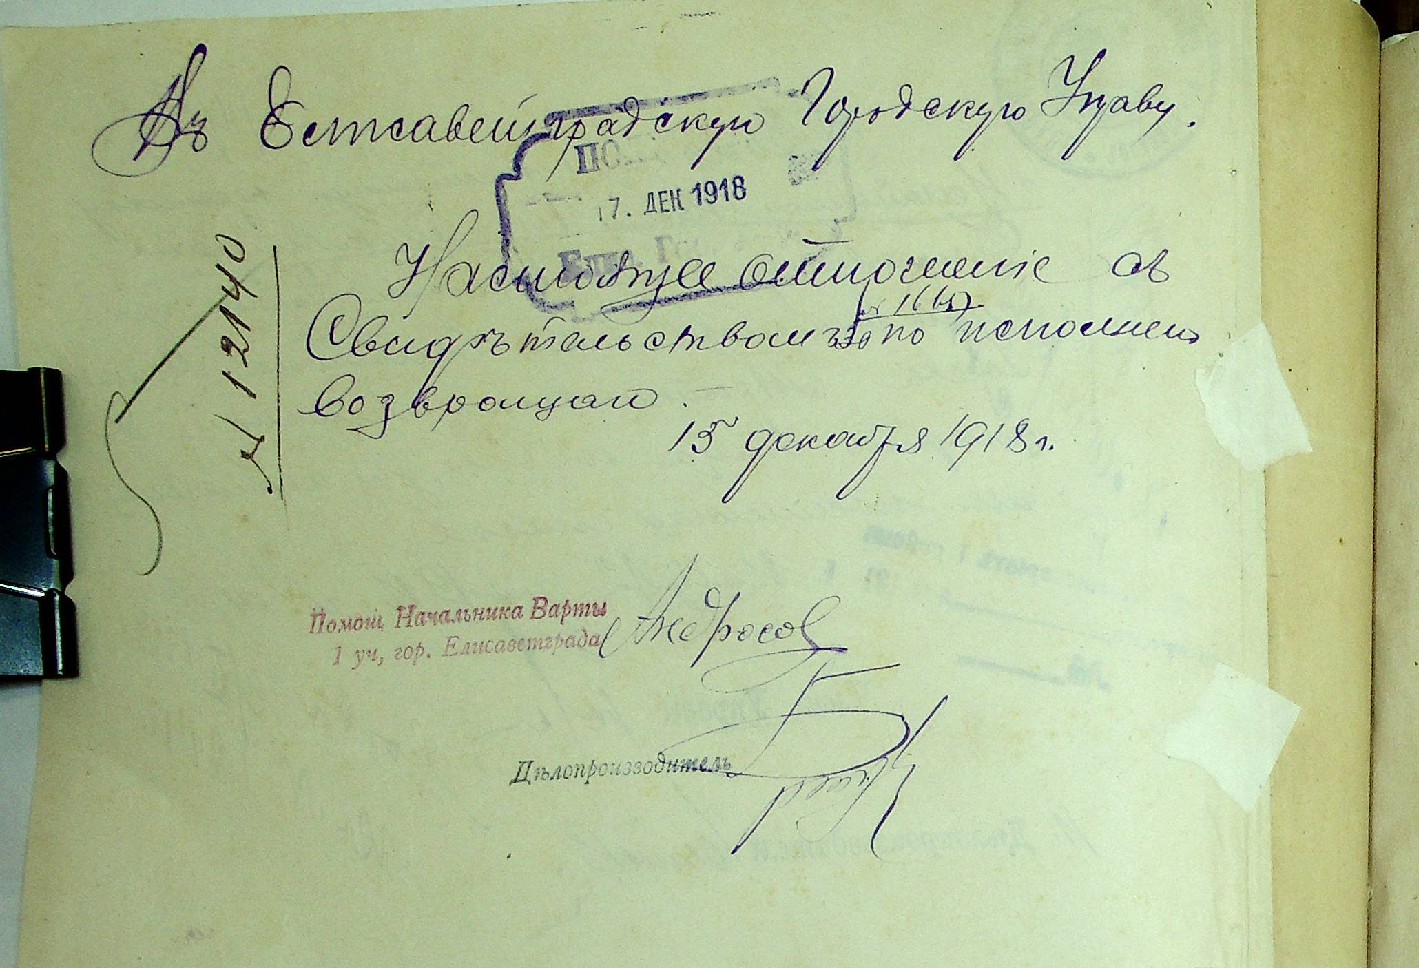 Въ Елисаветградскую Городскую Управу.
17. ДЕК 1918
Настоящее отношеніе съ
Свидѣтельствомъ по исполнен
возвращаю.
15 декабря 1918 г.
№ 12140
Помощ. Начальника Варты
1 уч, гор. Елисаветграда
Андросов
Дѣлопроизводитель